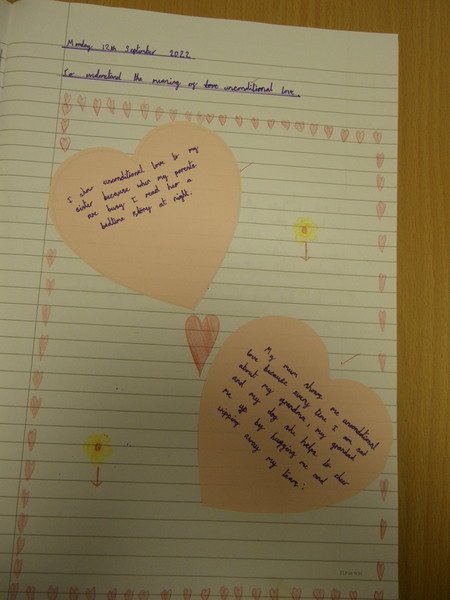 Monday 12th September 2022
To understand the meaning of love unconditional love.
I show unconditional love to my
sister because when my parents
are busy I read her a
bedtime story at night.
My mum shows me unconditional
love because every time I am sad
about my grandma, my grandad
and my dog she helps to cheer
me up by hugging me and
wipping away my tears.